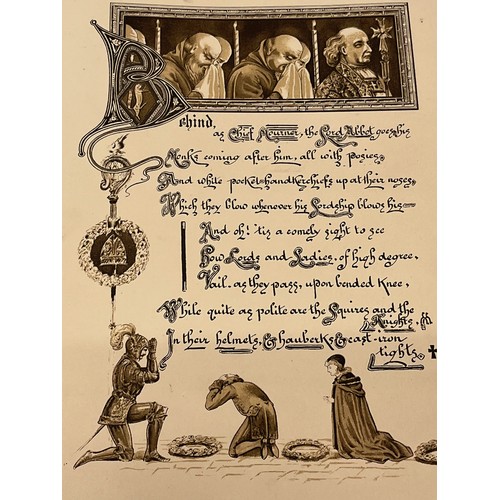 Behind,
as Chief Mourner, the Lord Abbot goes his
Monks coming after him, all with posies,
And white pocket-handkerchiefs up at their noses,
Which they blow whenever his Lordship blows his—
And oh! 'tis a comely sight to see
How Lords and Ladies, of high degree,
Vail, as they pass, upon bended knee,
While quite as polite are the Squires and the
Knights,
In their helmets, & hauberks, & cast-iron
tights.